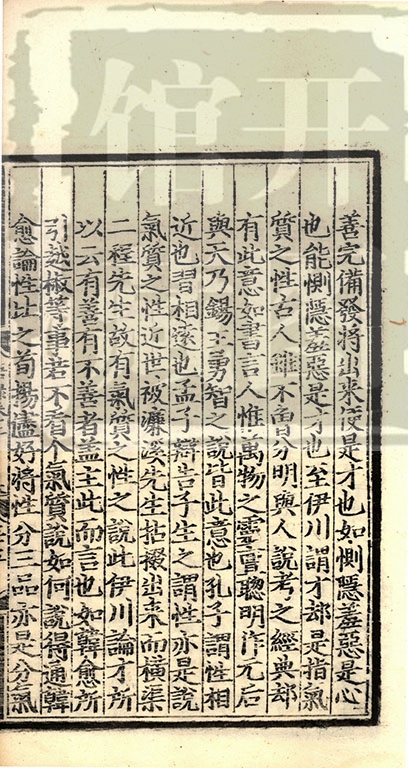 善完備發將出來便是才也如惻隱羞惡是心
也能惻隱羞惡是才也至伊川謂才却是指氣
質之性古人雖不曾分明與人說考之經典却
有此意如書言人惟萬物之靈亶聰明作元后
與天乃錫王勇智之說皆此意也孔子謂性相
近也習相遠也孟子辯告子生之謂性亦是說
氣質之性近世被濂溪先生拈掇出來而橫渠
二程先生故有氣質之性之說此伊川論才所
以云有善有不善者蓋主此而言也如韓愈所
引越椒等事若不看个氣質說如何說得通韓
愈論性比之荀揚儘好將性分三品亦是分氣
馆开